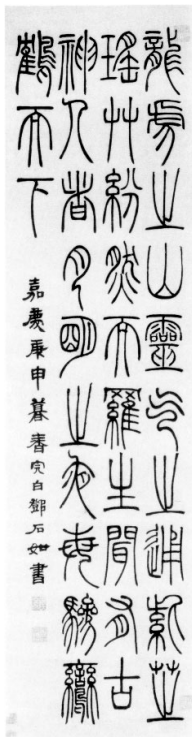 龍虎之山靈气之通紫芝
瑤艸紛然而羅生間有古
神人者月明之夜每驂鸞
鶴而下
嘉慶庚申暮春完白鄧石如書